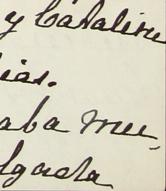 y Catalina
ias.
aba mu-
lgada